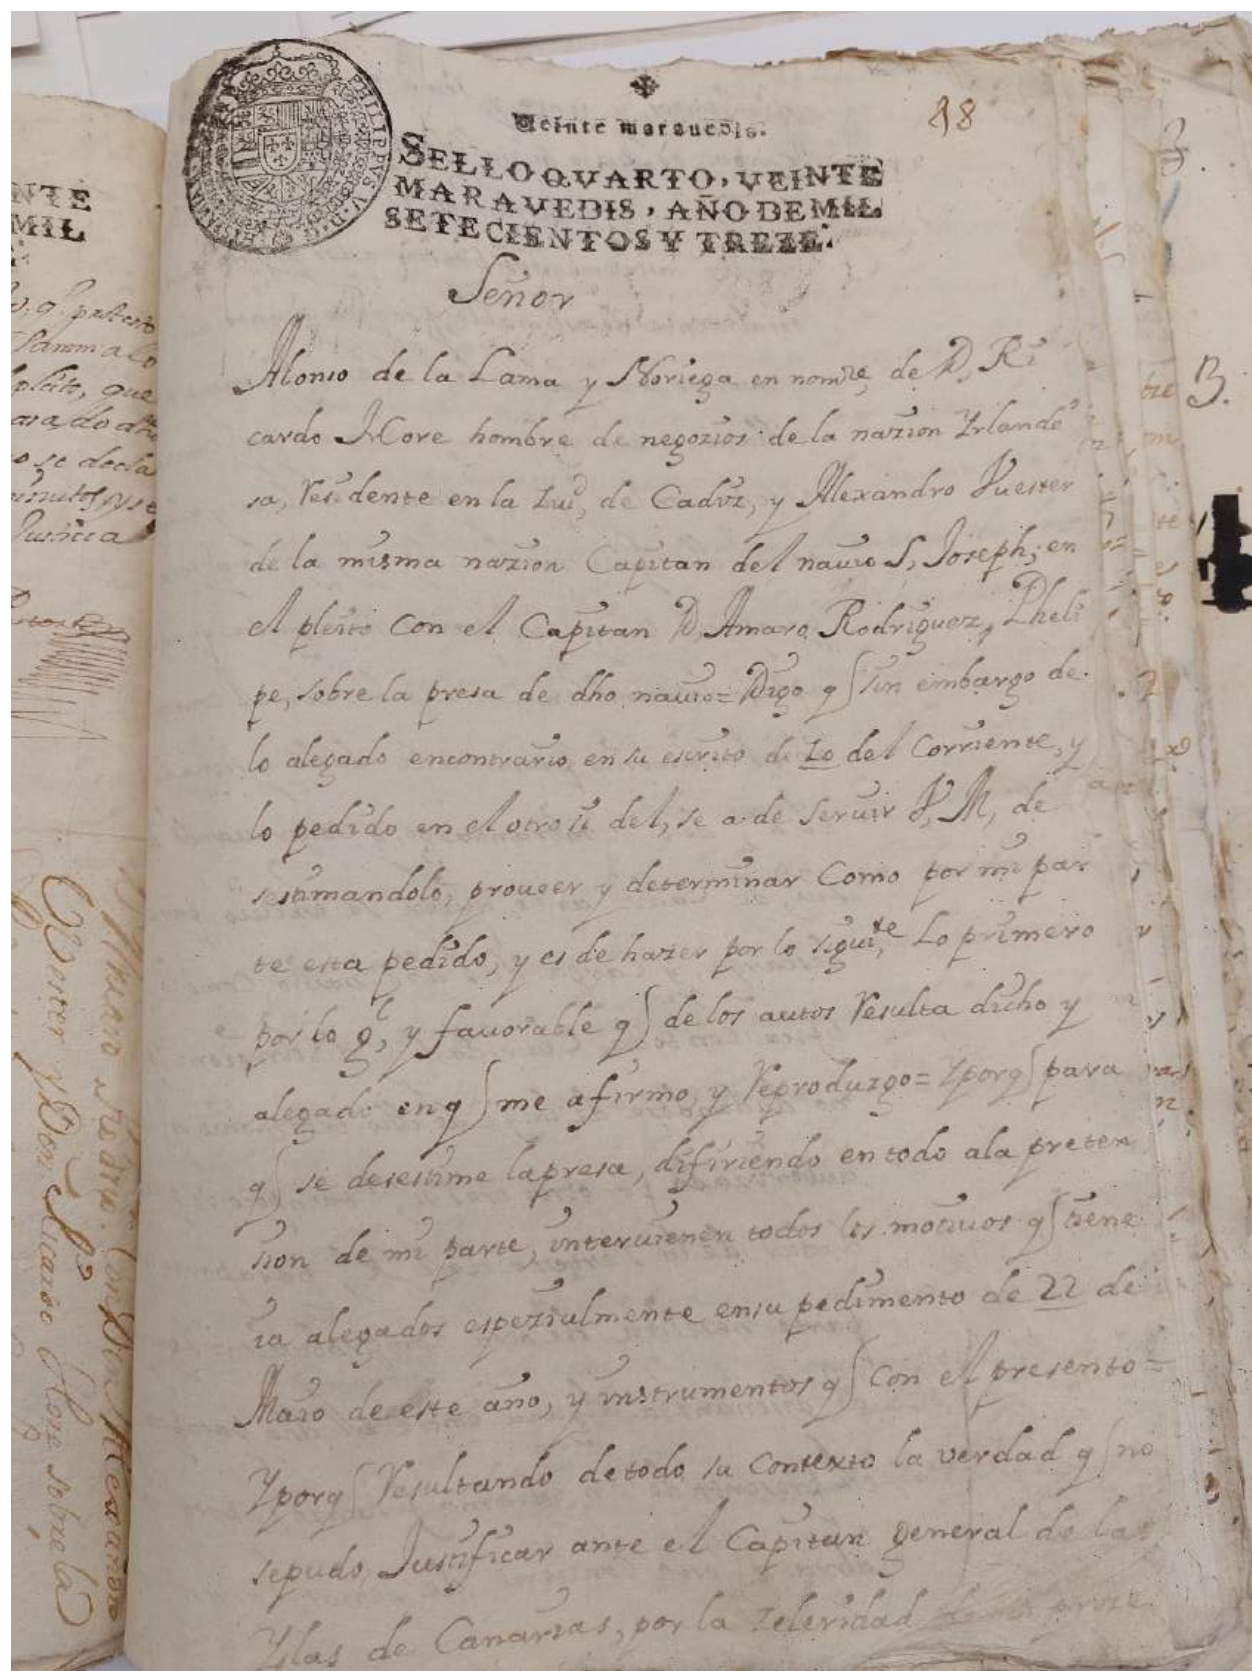 88
Veinte marauedis.
SELLO QVARTO, VEINTE
MARAVEDIS, AÑO DE MIL
SETECIENTOS Y TREZE.
PHILIPPVS V D
Señor
Alonso de la Lama y Noriega en nomre de D, Ri
cardo More hombre de negozios de la nazion Yrlande
sa, Residente en la Ziud, de Cadiz, y Alexandro Vuester
de la misma nazion Capitan del nauio S, Joseph; en
el pleito con el Capitan D Amaro Rodriguez, Pheli
pe, sobre la presa de dho nauio = Digo q sin embargo de
lo alegado encontrario en su escrito de 10 del Corriente, y
lo pedido en el otrosi del, se a de seruir V, M, de
sestimandolo, proueer y determinar Como por mi par
te esta pedido, y es de hazer por lo siguite, Lo primero
por lo gl, y fauorable q de los autos Resulta dicho y
alegado en q me afirmo y Reproduzgo = Yporq para
q se desestime la presa, difiriendo en todo ala preten
sion de mi parte, interuienen todos los motiuos q tiene
ia alegados espezialmente ensu pedimento de 22 de
Maio de este año, y instrumentos q con el presento =
Yporq Resultando de todo su Contexto la verdad q no
sepudo Justificar ante el Capitan general de las
Yslas de Canarias, por la zeleridad
NTE
MIL
que
Justicia
Vuester y Don Ricardo More sobre la
B.